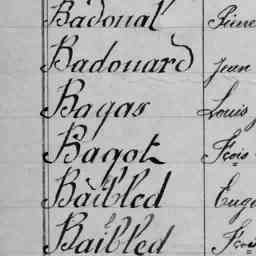 Badoual Pierre
Badouard Jean
Bagas Louis
Bagot Fçois
Baibled Eugè
Baibled Fçois